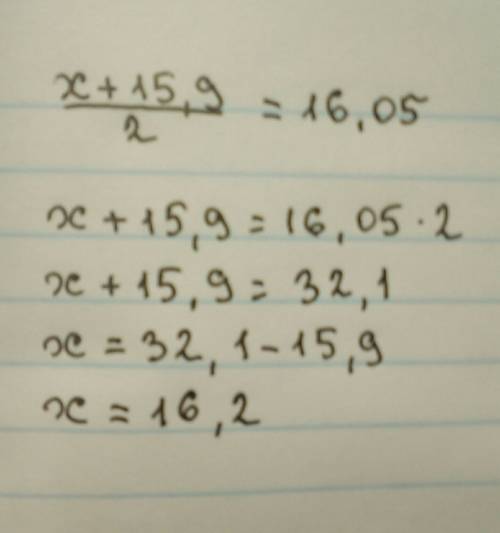 x + 15,9 / 2 = 16,05
x + 15,9 = 16,05 · 2
x + 15,9 = 32,1
x = 32,1 - 15,9
x = 16,2